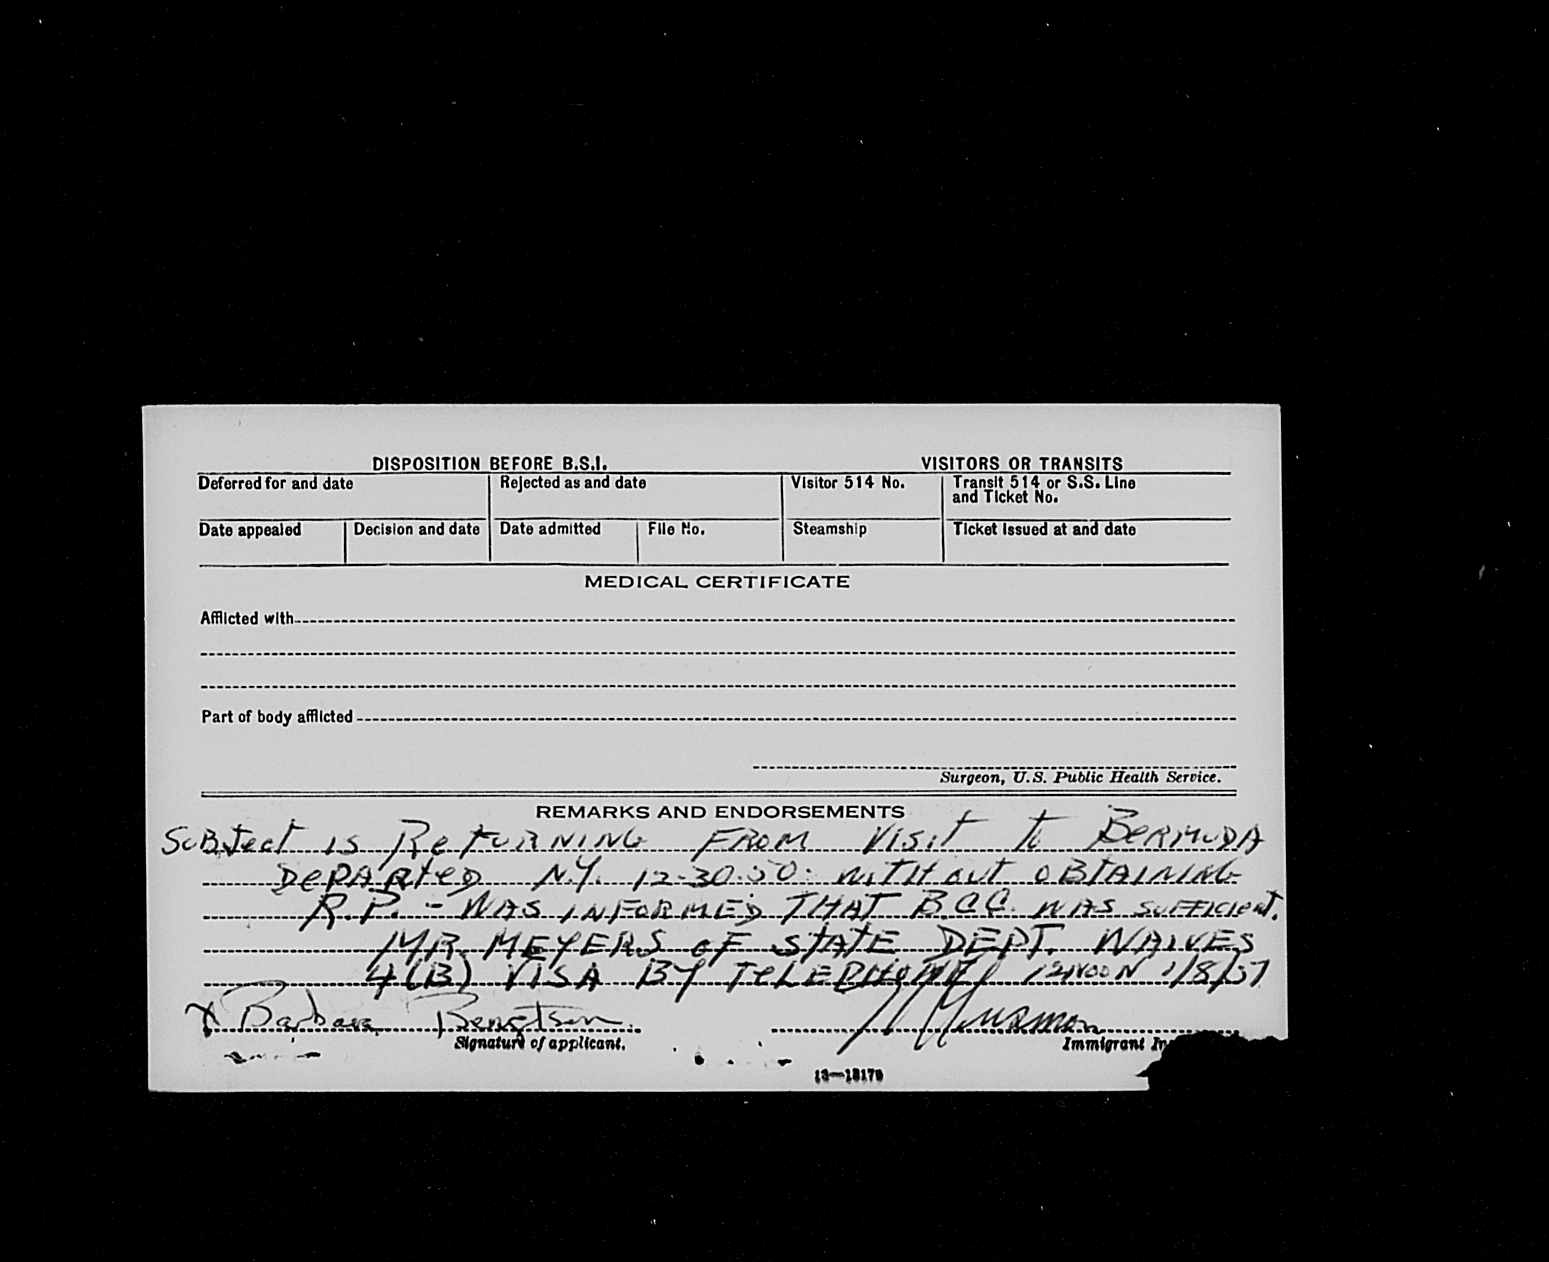 DISPOSITION BEFORE B.S.I. VISITORS OR TRANSITS
Deferred for and date Rejected as and date Visitor 514 No. Transit 514 or S.S. Line and Ticket No.
Date appealed Decision and date Date admitted File No. Steamship Ticket issued at and date
MEDICAL CERTIFICATE
Afflicted with
Part of body afflicted
Surgeon, U.S. Public Health Service.
REMARKS AND ENDORSEMENTS
SUBJect IS ReTURNING FROM VISIT to BERMUDA
DePARteD N.Y. 12-30-50. WITHOUT OBTAINING
R.P. - WAS INFORMED THAT B.C.C. WAS SUFFICIENT.
MR. MEYERS OF STATE DEPT. WAIVES
4(B) VISA BY TeLEPHONE 12NOON 1/8/51
X Barbara Bengtson
Signature of applicant. Immigrant
13—18179